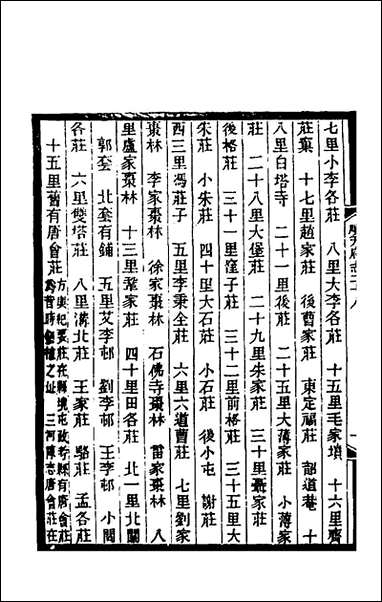 七里小李各莊　八里大李各莊　十五里毛家墳　十六里齊
莊窠　十七里趙家莊　後曹家莊　東定福莊　韶道巷　十
八里白塔寺　二十一里後莊　二十五里大薄家莊　小薄家
莊　二十八里大堡莊　二十九里朱家莊　三十里聶家莊
後格莊　三十一里窪子莊　三十二里前格莊　三十五里大
朱莊　小朱莊　四十里大石莊　小石莊　後小屯　謝莊
西三里馮莊子　五里李秉全莊　六里六道曹莊　七里劉家
棗林　李家棗林　徐家棗林　石佛寺棗林　雷家棗林　八
里盧家棗林　十三里
家莊　四十里田各莊　北一里北關
郭套　北套有鋪　五里艾李邨　劉李邨　王李邨　小閻
各莊　六里雙塔莊　八里溝北莊　王家莊　駱莊　孟各莊
十五里舊有唐會莊
方輿紀要莊在縣境屯政考縣有唐會莊
爲昔時
之址　三河陳志唐會莊在
順天府志二十八